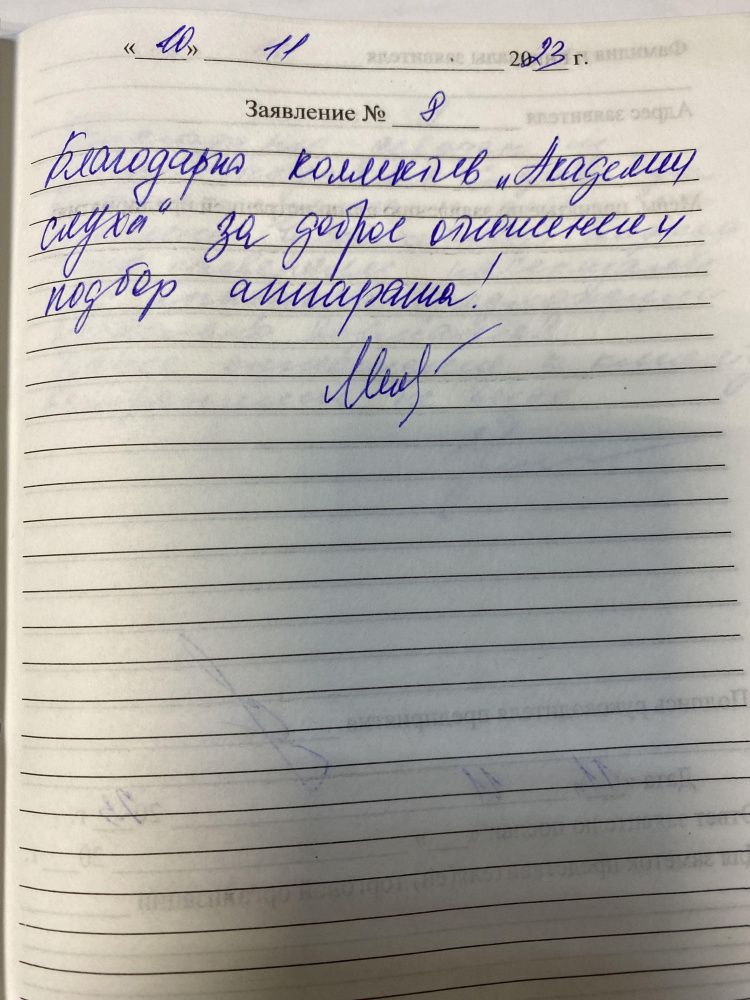 «10» 11 2023 г.
Заявление № 8
Благодарю коллектив „Академии
слуха" за доброе отношение и
подбор аппарата!